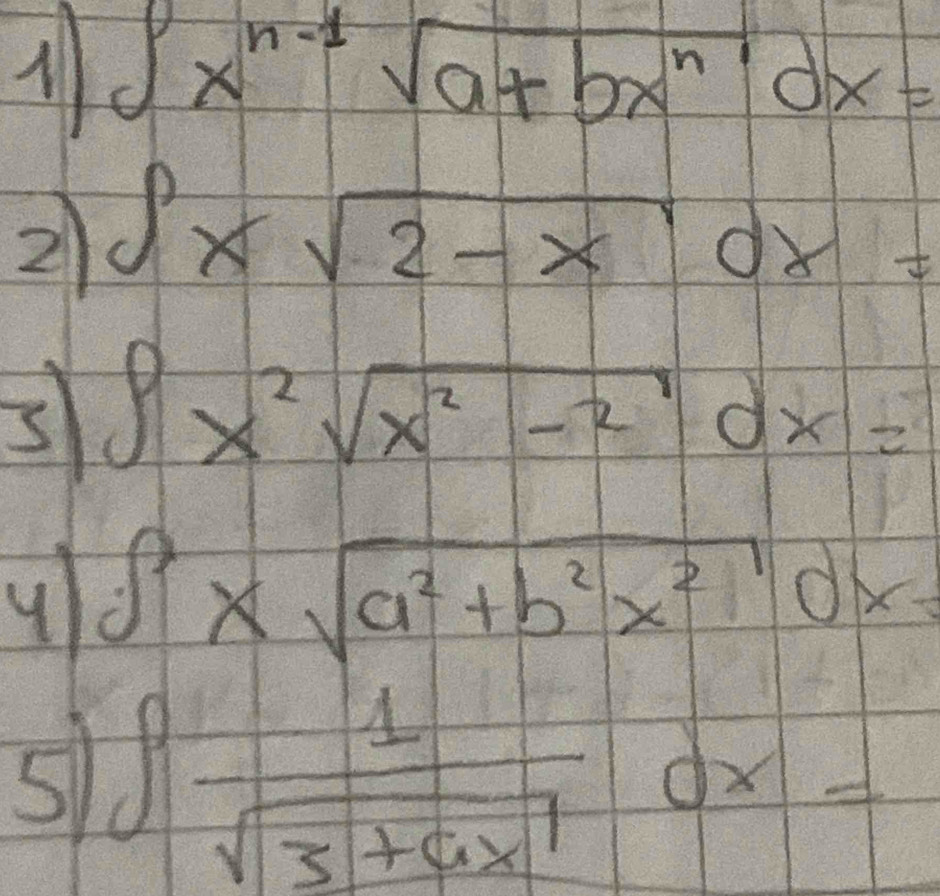 1) ∫ x^{n-1} √(a+bx^n) dx =
2) ∫ x √(2-x) dx =
3) ∫ x² √(x² -2) dx =
4) ∫ x √(a²+b²x²) dx =
5) ∫ 1/√(3+ax) dx =